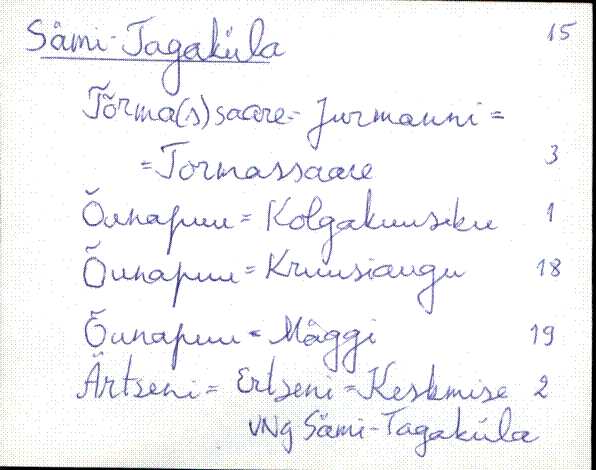 Sämi-Tagaküla 15
Tõrma(s)saare- Jurmanni =
= Tormassaare 3
Õunapuu = Kolgakuusiku 1
Õunapuu = Kruusiaugu 18
Õunapuu = Mäggi 19
Ärtseni = Ertseni = Keskmise 2
VNg Sämi-Tagaküla